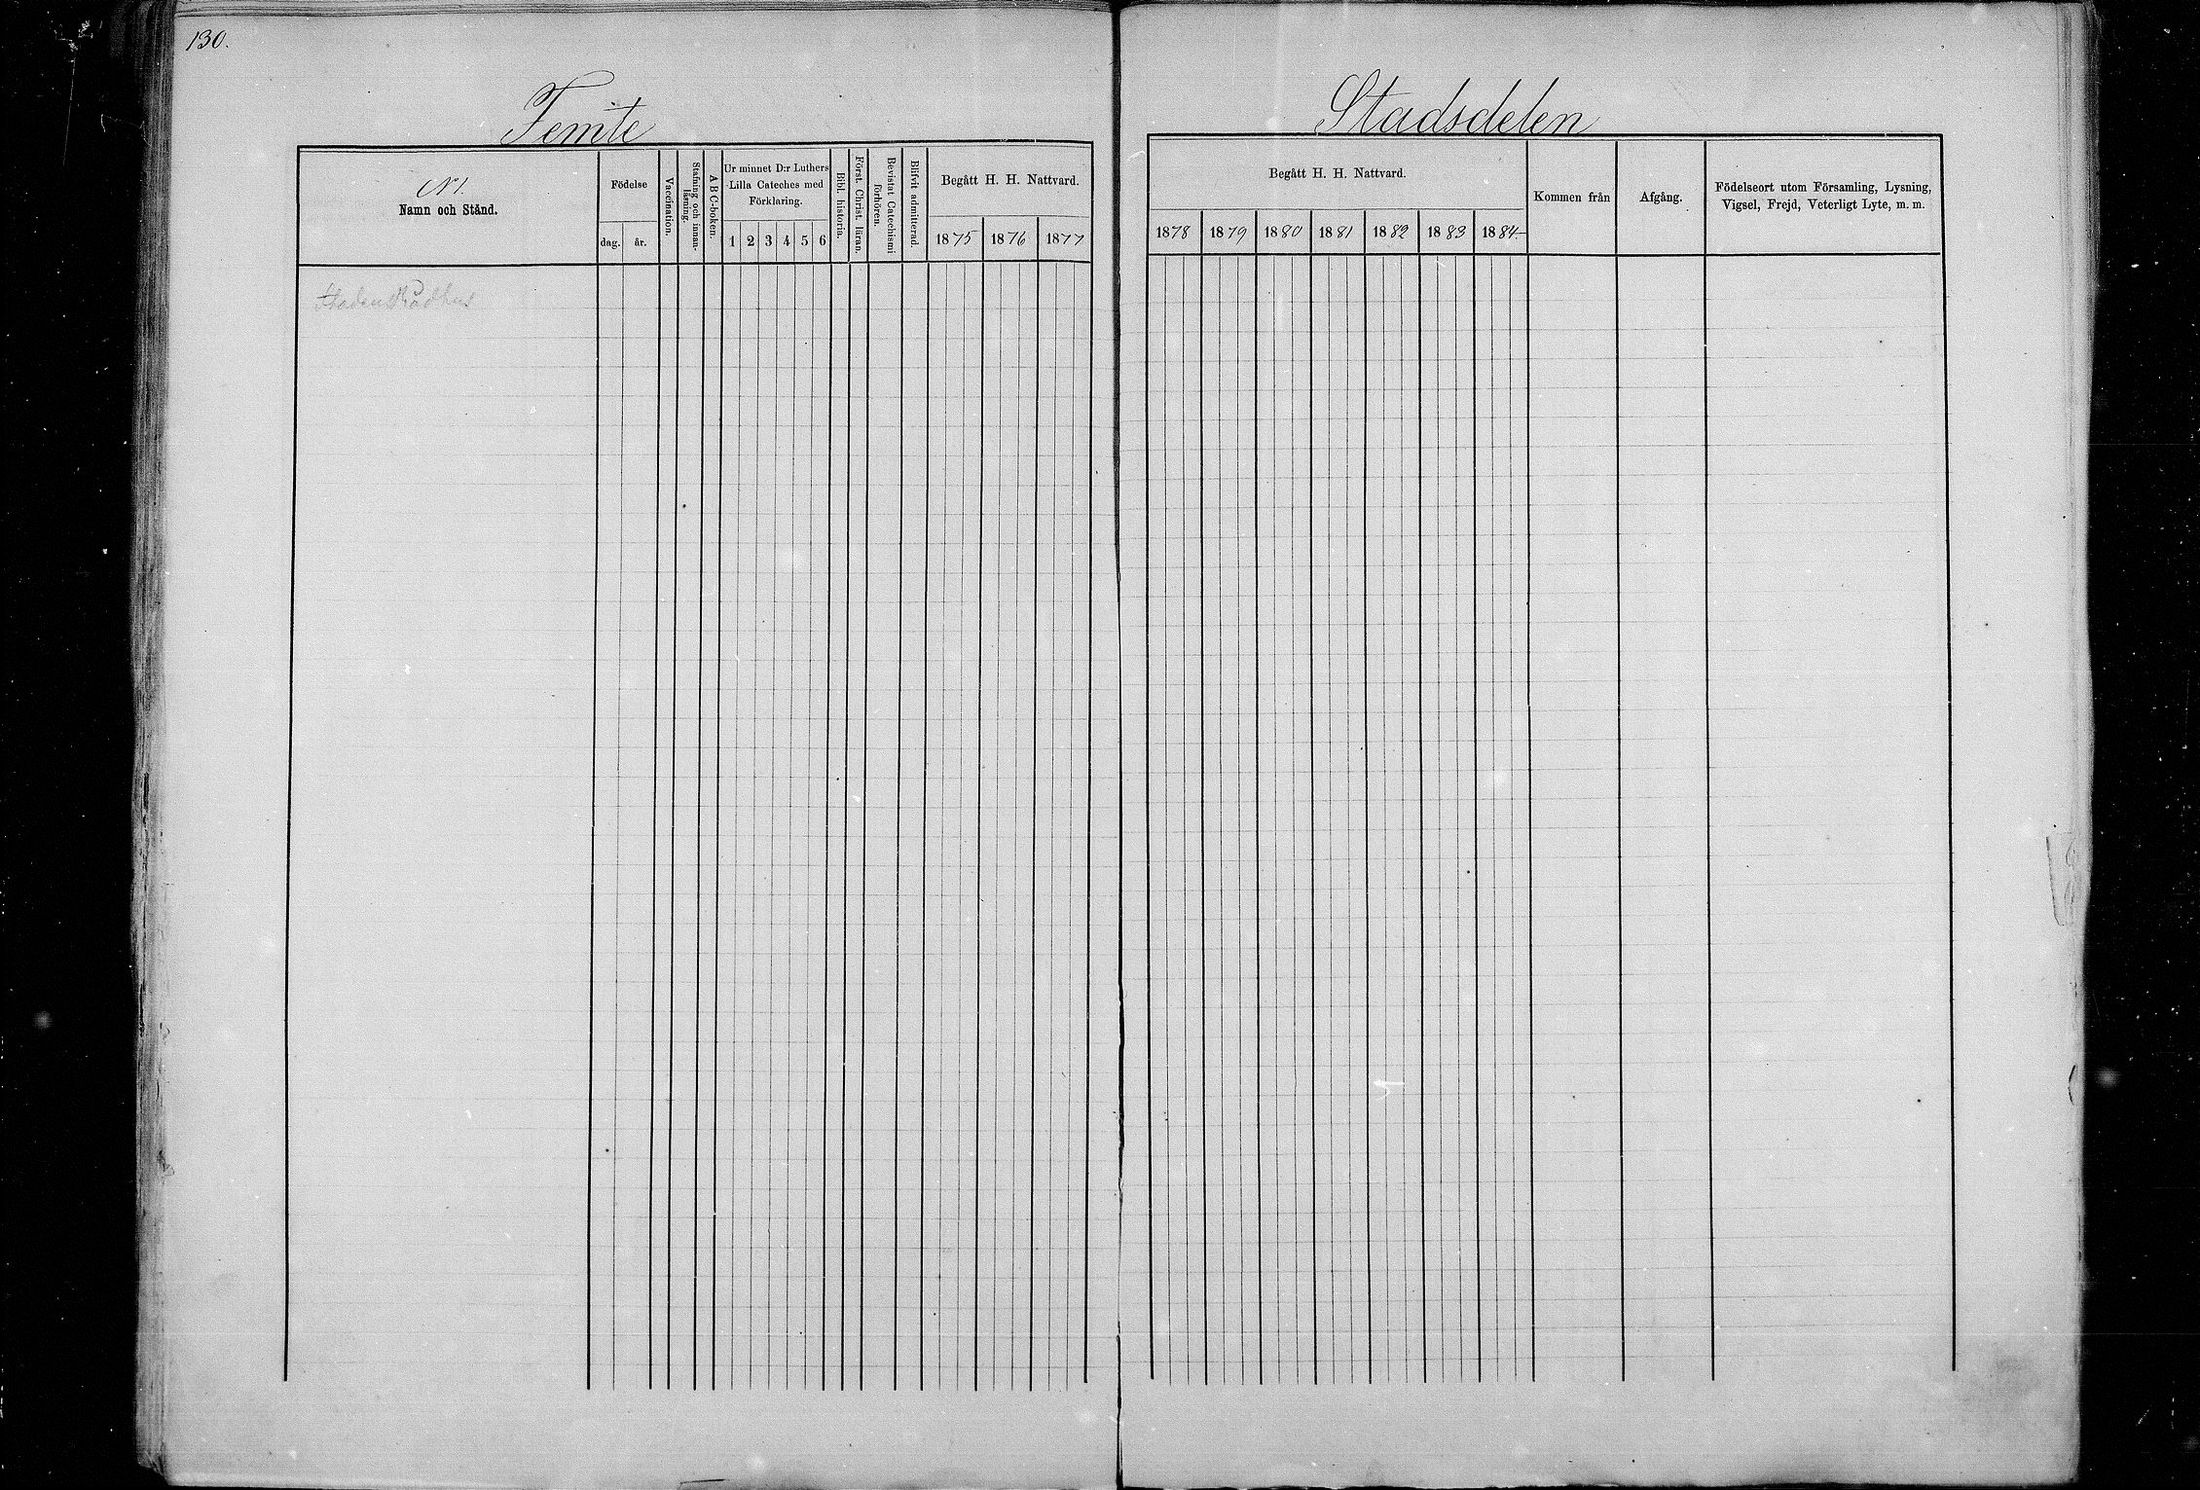 130.
Femte Stadsdelen
N 1.
Namn och Stånd.
Födelse
dag. år.
Vaccination.
Stafning och innan-
läsning.
A B C-boken.
Ur minnet D:r Luthers
Lilla Cateches med
Förklaring.
1 2 3 4 5 6
Bibl. historia.
Först. Christ. läran.
Bevistat Catechismi
förhören.
Blifvit admitterad.
Begått H. H. Nattvard.
1875 1876 1877
Begått H. H. Nattvard.
1878 1879 1880 1881 1882 1883 1884
Kommen från
Afgång.
Födelseort utom Församling, Lysning,
Vigsel, Frejd, Veterligt Lyte, m. m.
Stadens Rådhus